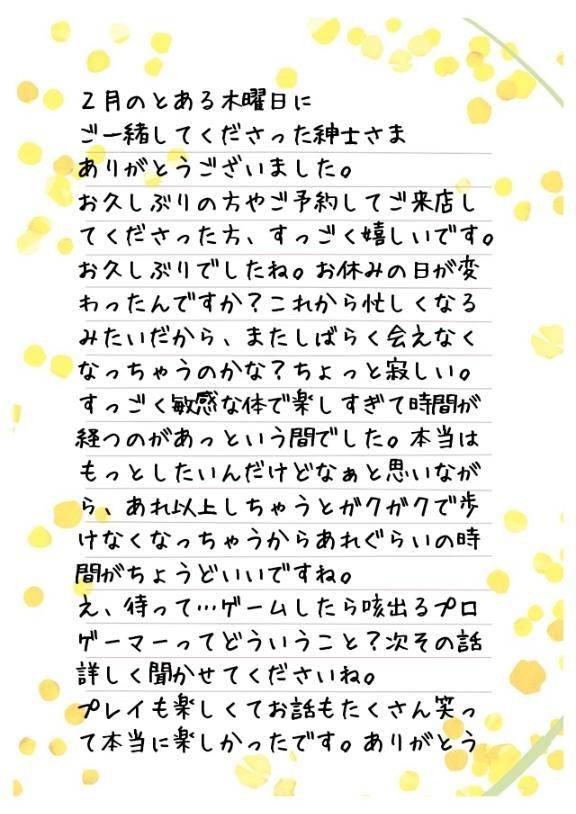 ２月のとある木曜日に
ご一緒してくださった紳士さま
ありがとうございました。
お久しぶりの方やご予約してご来店し
てくださった方、すっごく嬉しいです。
お久しぶりでしたね。お休みの日が変
わったんですか？これから忙しくなる
みたいだから、またしばらく会えなく
なっちゃうのかな？ちょっと寂しい。
すっごく敏感な体で楽しすぎて時間が
経つのがあっという間でした。本当は
もっとしたいんだけどなぁと思いなが
ら、あれ以上しちゃうとガクガクで歩
けなくなっちゃうからあれぐらいの時
間がちょうどいいですね。
え、待って…ゲームしたら咳出るプロ
ゲーマーってどういうこと？次その話
詳しく聞かせてくださいね。
プレイも楽しくてお話もたくさん笑っ
て本当に楽しかったです。ありがとう